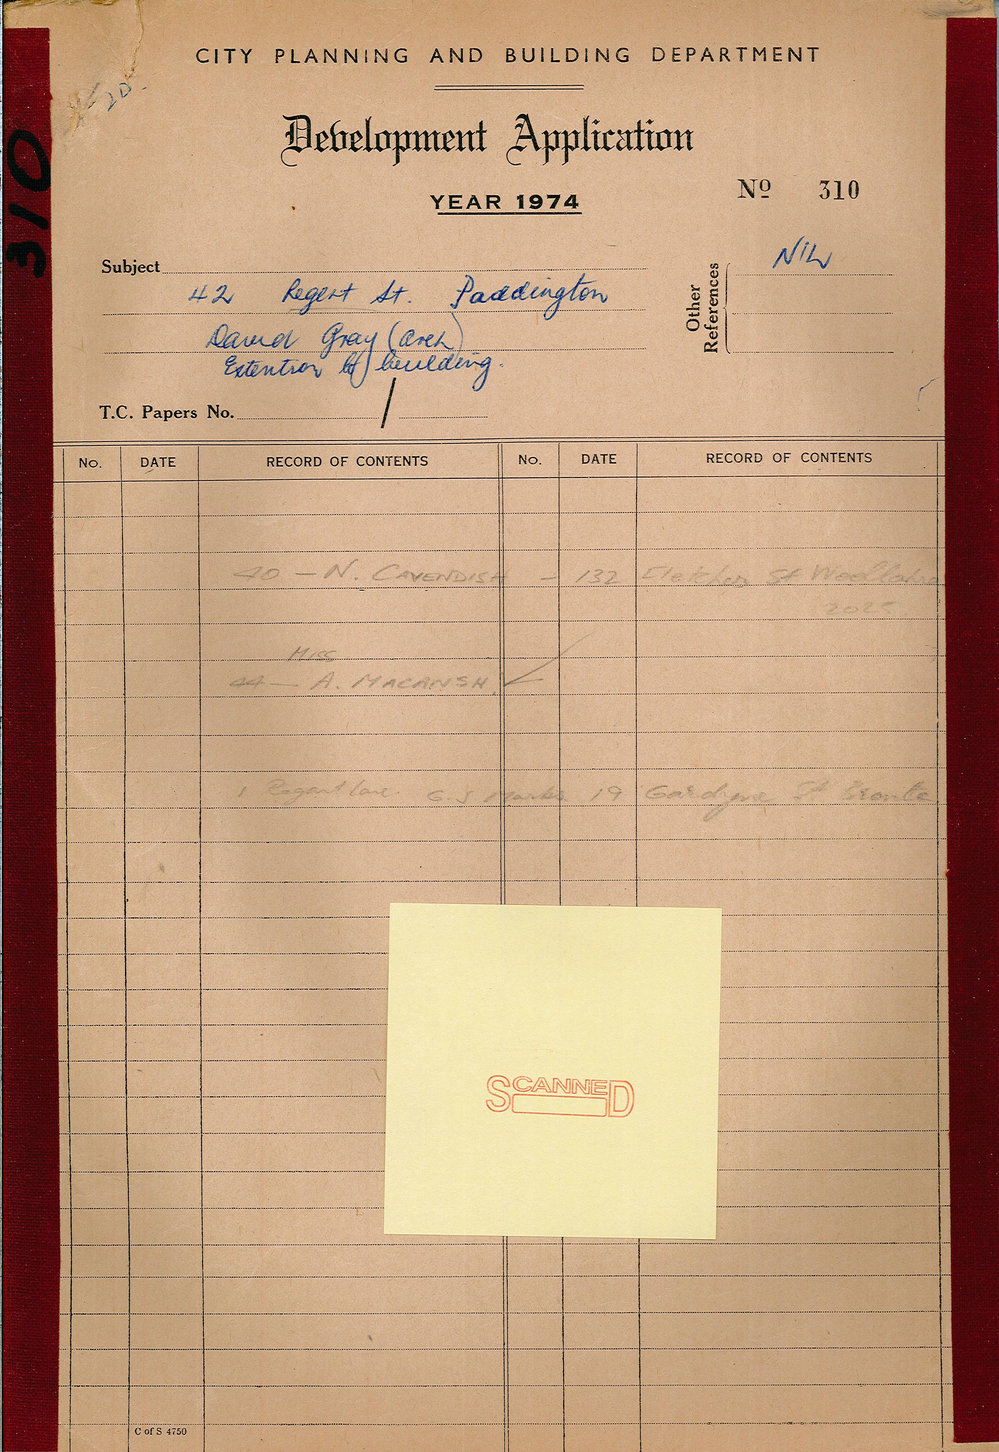 CITY PLANNING AND BUILDING DEPARTMENT
20.
Development Application
YEAR 1974
Nº 310
310
Subject
42 Regent St. Paddington
David Gray (arch)
Extention of building.
Other References
NIL
T.C. Papers No. /
No. DATE RECORD OF CONTENTS No. DATE RECORD OF CONTENTS
40 – N. CAVENDISH – 132 Fletcher St Woollahra
2025.
Miss
44 – A. MACANSH.
1 Regent Lane. G. J Marks 19 Gardyne St Bronte
SCANNED
C of S 4750